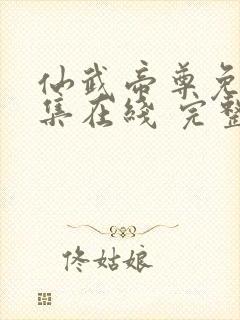 仙武帝尊免
集在綫 完整
佟姑娘